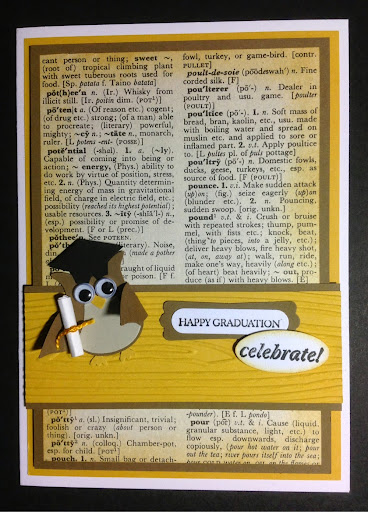 cant person or thing; sweet ~,
(root of) tropical climbing plant
with sweet tuberous roots used for
food. [Sp. patata f. Taino batata]
pŏt(h)ee'n n. (Ir.) Whisky from
illicit still. [Ir. poitín dim. (POT¹)]
pō'tent a. (Of reason etc.) cogent;
(of drug etc.) strong; (of a man) able
to procreate; (literary) powerful,
mighty;
n., monarch,
ruler. [L potens -ent- (POSSE)]
potě'ntial (-shal) (~ly).
Capable of coming into being or
action; ~ energy, (Phys.) ability to
do work by virtue of position, stress,
etc. 2. n. (Phys.) Quantity determin-
ing energy of mass in gravitational
field, of charge in electric field, etc.;
possibility (reached its highest potential);
usable resources. 3.
(esp.) possibility or promise of de-
velopment. [F or L (prec.)]
See POTEEN.
(literary). Noise,
(made a pother
draught of liquid
poison. [F f.
fowl, turkey, or game-bird. [contr.
PULLET]
poult-de-soie n. Fine
corded silk. [F]
pou'lterer (pō'-) n. Dealer in
poultry and usu. game. [poulter
(POULT)]
pou'ltice (pō'-). 1. n. Soft mass of
bread, bran, kaolin, etc., usu. made
with boiling water and spread on
muslin etc. and applied to sore or
inflamed part. 2. v.t. Apply poultice
to. [L pultes pl. of puls pottage]
pou'ltrў (pō'-) n. Domestic fowls,
ducks, geese, turkeys, etc., esp. as
source of food. [F (POULT)]
pounce. 1. v.i. Make sudden attack
(up)on; (fig.) seize eagerly (up)on
(blunder etc.). 2. n. Pouncing,
sudden swoop. [orig. unkn.]
pound¹. v.t. & i. Crush or bruise
with repeated strokes; thump, pum-
mel, with fists etc.; knock, beat,
(thing) to pieces, into a jelly, etc.;
deliver heavy blows, fire heavy shot,
(at, on, away at); walk, run, ride,
make one's way, heavily (along etc.);
(of heart) beat heavily; ~ out, pro-
duce (as if) with heavy blows. [E]
HAPPY GRADUATION
celebrate!
(POT¹)]
pŏ'ttў¹ a. (sl.) Insignificant, trivial;
foolish or crazy (about person or
thing). [orig. unkn.]
pŏ'ttў² n. (colloq.) Chamber-pot,
esp. for child. [POT¹]
pouch. 1. Small bag or detach-
-pounder). [E f. L pondo]
pour (pōr) v.t. & i. Cause (liquid,
granular substance, light, etc.) to
flow esp. downwards, discharge
copiously, (pour hot water on it; pour
out the tea; river pours itself into the sea;